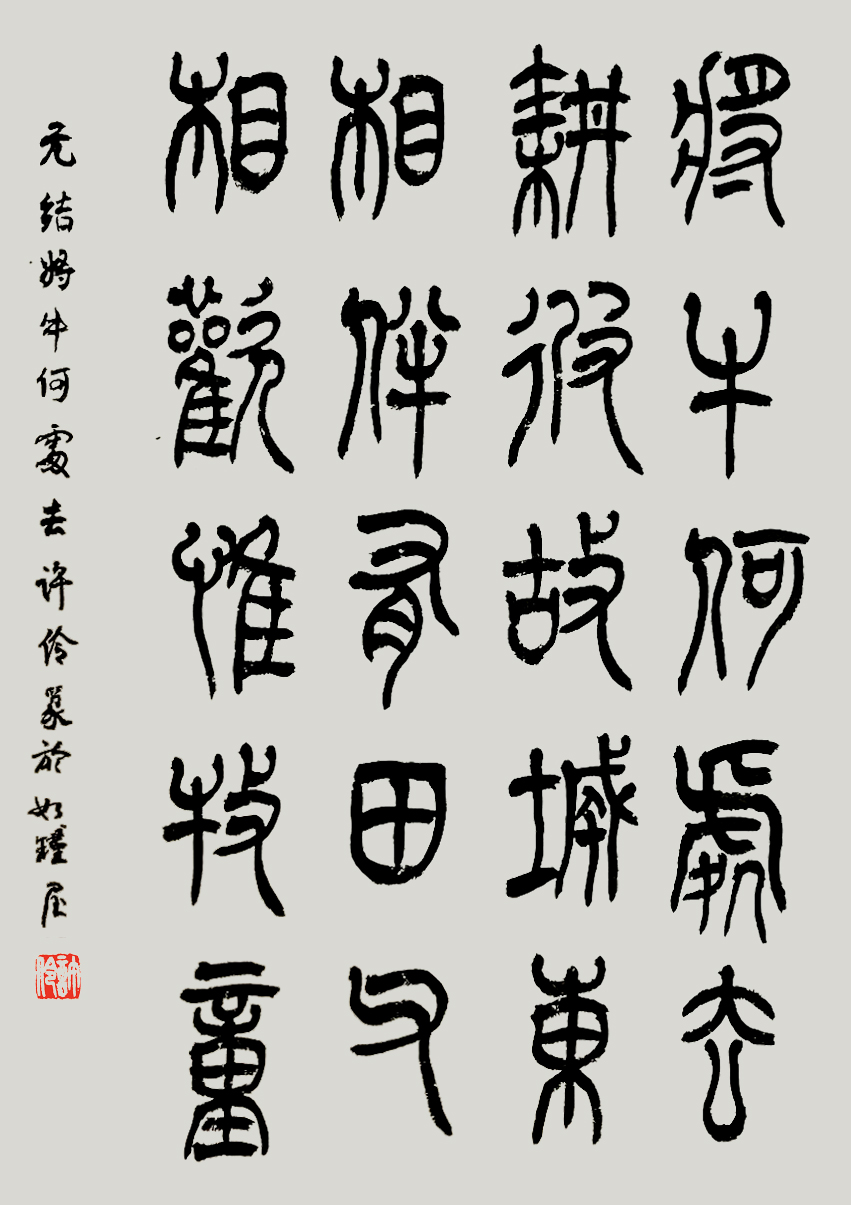 將牛何處去
耕彼故城東
相伴有田父
相歡惟牧童
元结將牛何處去许伶篆於如鐘屋
許伶